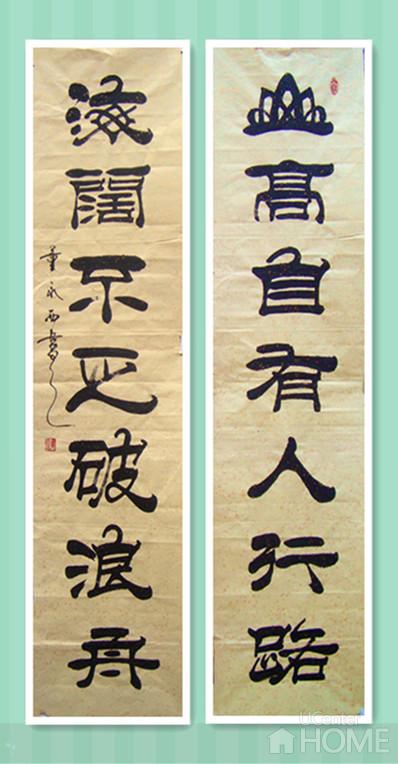 山高自有人行路
海闊不乏破浪舟
董永西書
UCenter
HOME